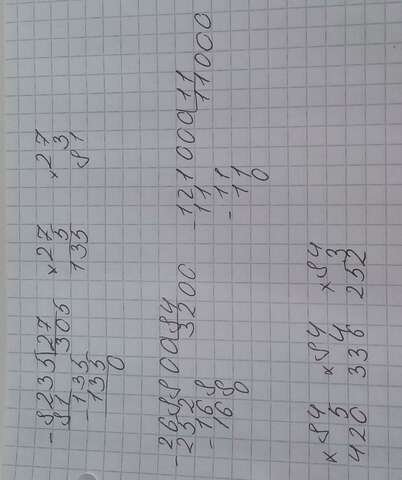 -8235|27 ×27 ×27
81 305 5 3
-135 135 81
135
0
-268800|84 -121 000|11
252 3200 11 11000
-168 -11
168 11
0 0
×84 ×84 ×84
5 4 3
420 336 252